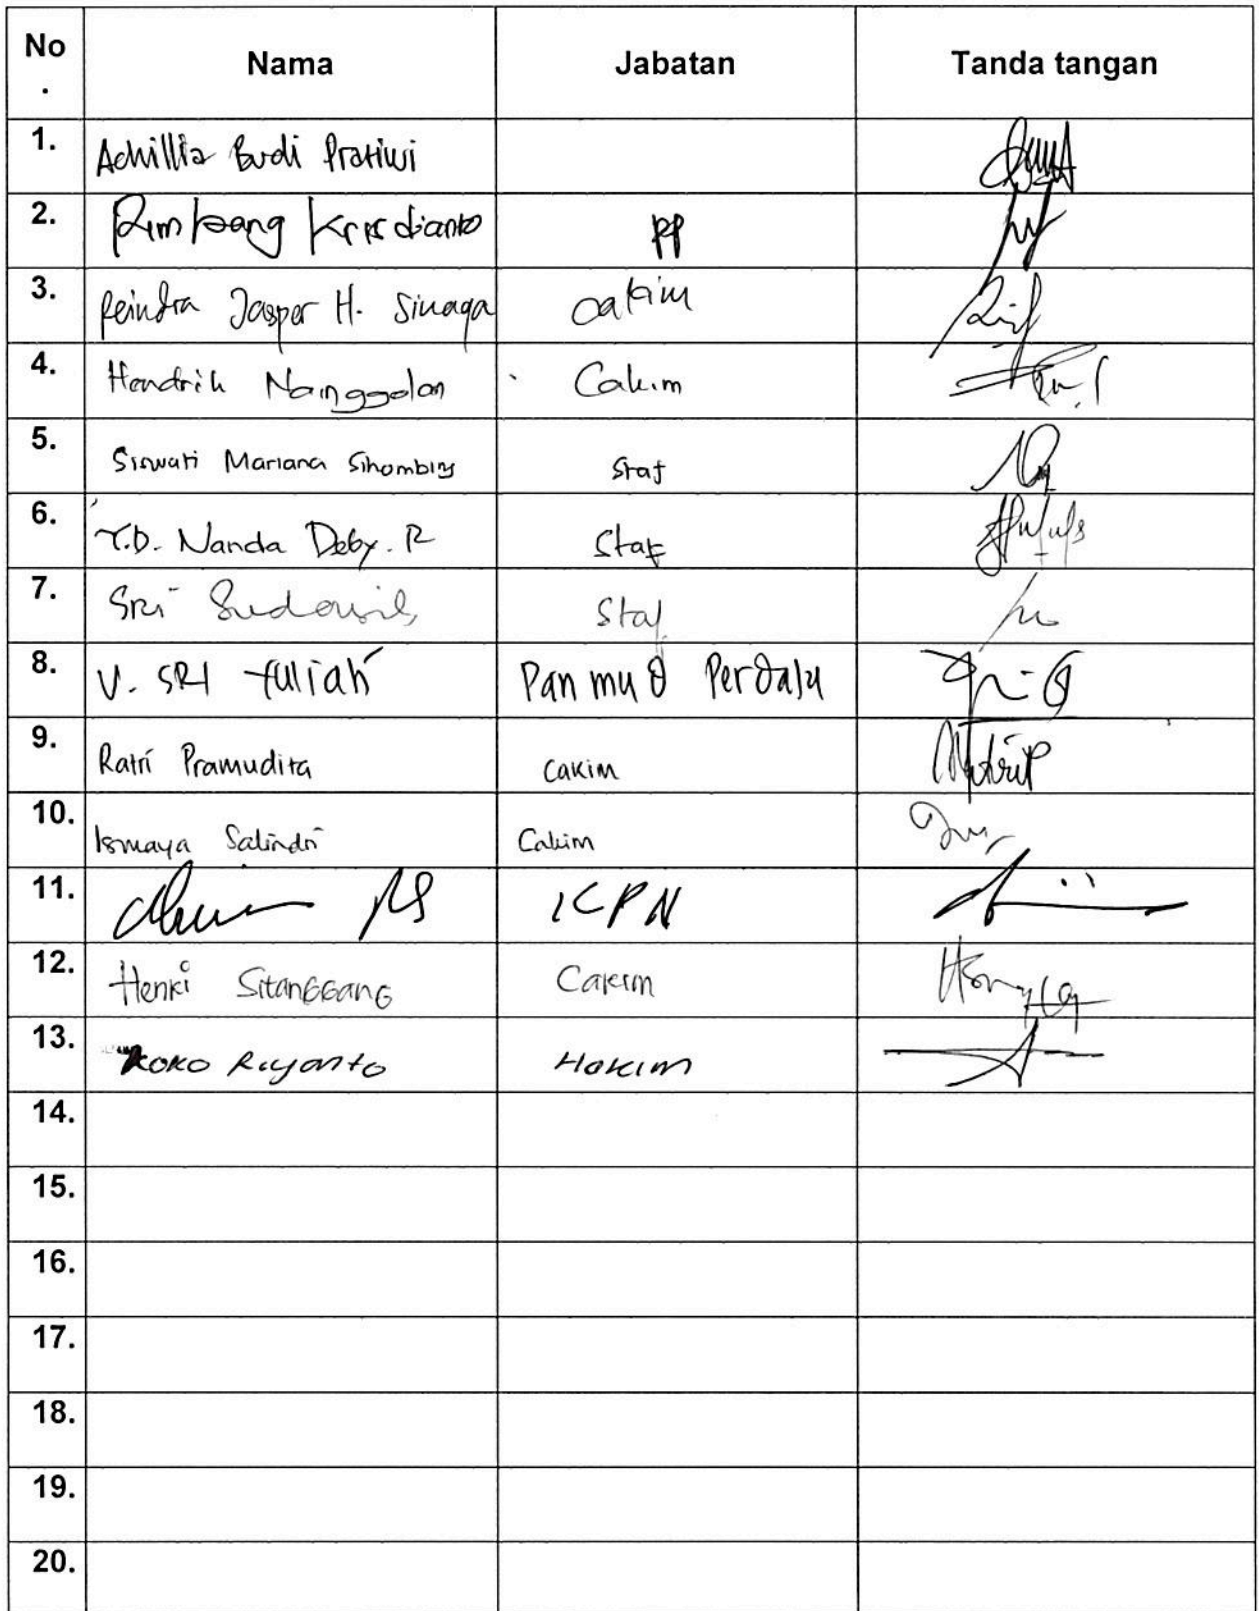 No. Nama Jabatan Tanda tangan
1. Achillia Budi Pratiwi
2. Krisdianto PP
3. Reindra Jasper H. Sinaga Cakim
4. Hendrik Nainggolan Cakim
5. Siswati Mariana Sihombing Staf
6. Y.D. Nanda Deby. R Staf
7. Sri Staf
8. V. SRI Panmud Perdata
9. Ratri Pramudita Cakim
10. Ismaya Salindri Cakim
11. KPN
12. Henki Sitanggang Cakim
13. Koko Riyanto Hakim
14.
15.
16.
17.
18.
19.
20.